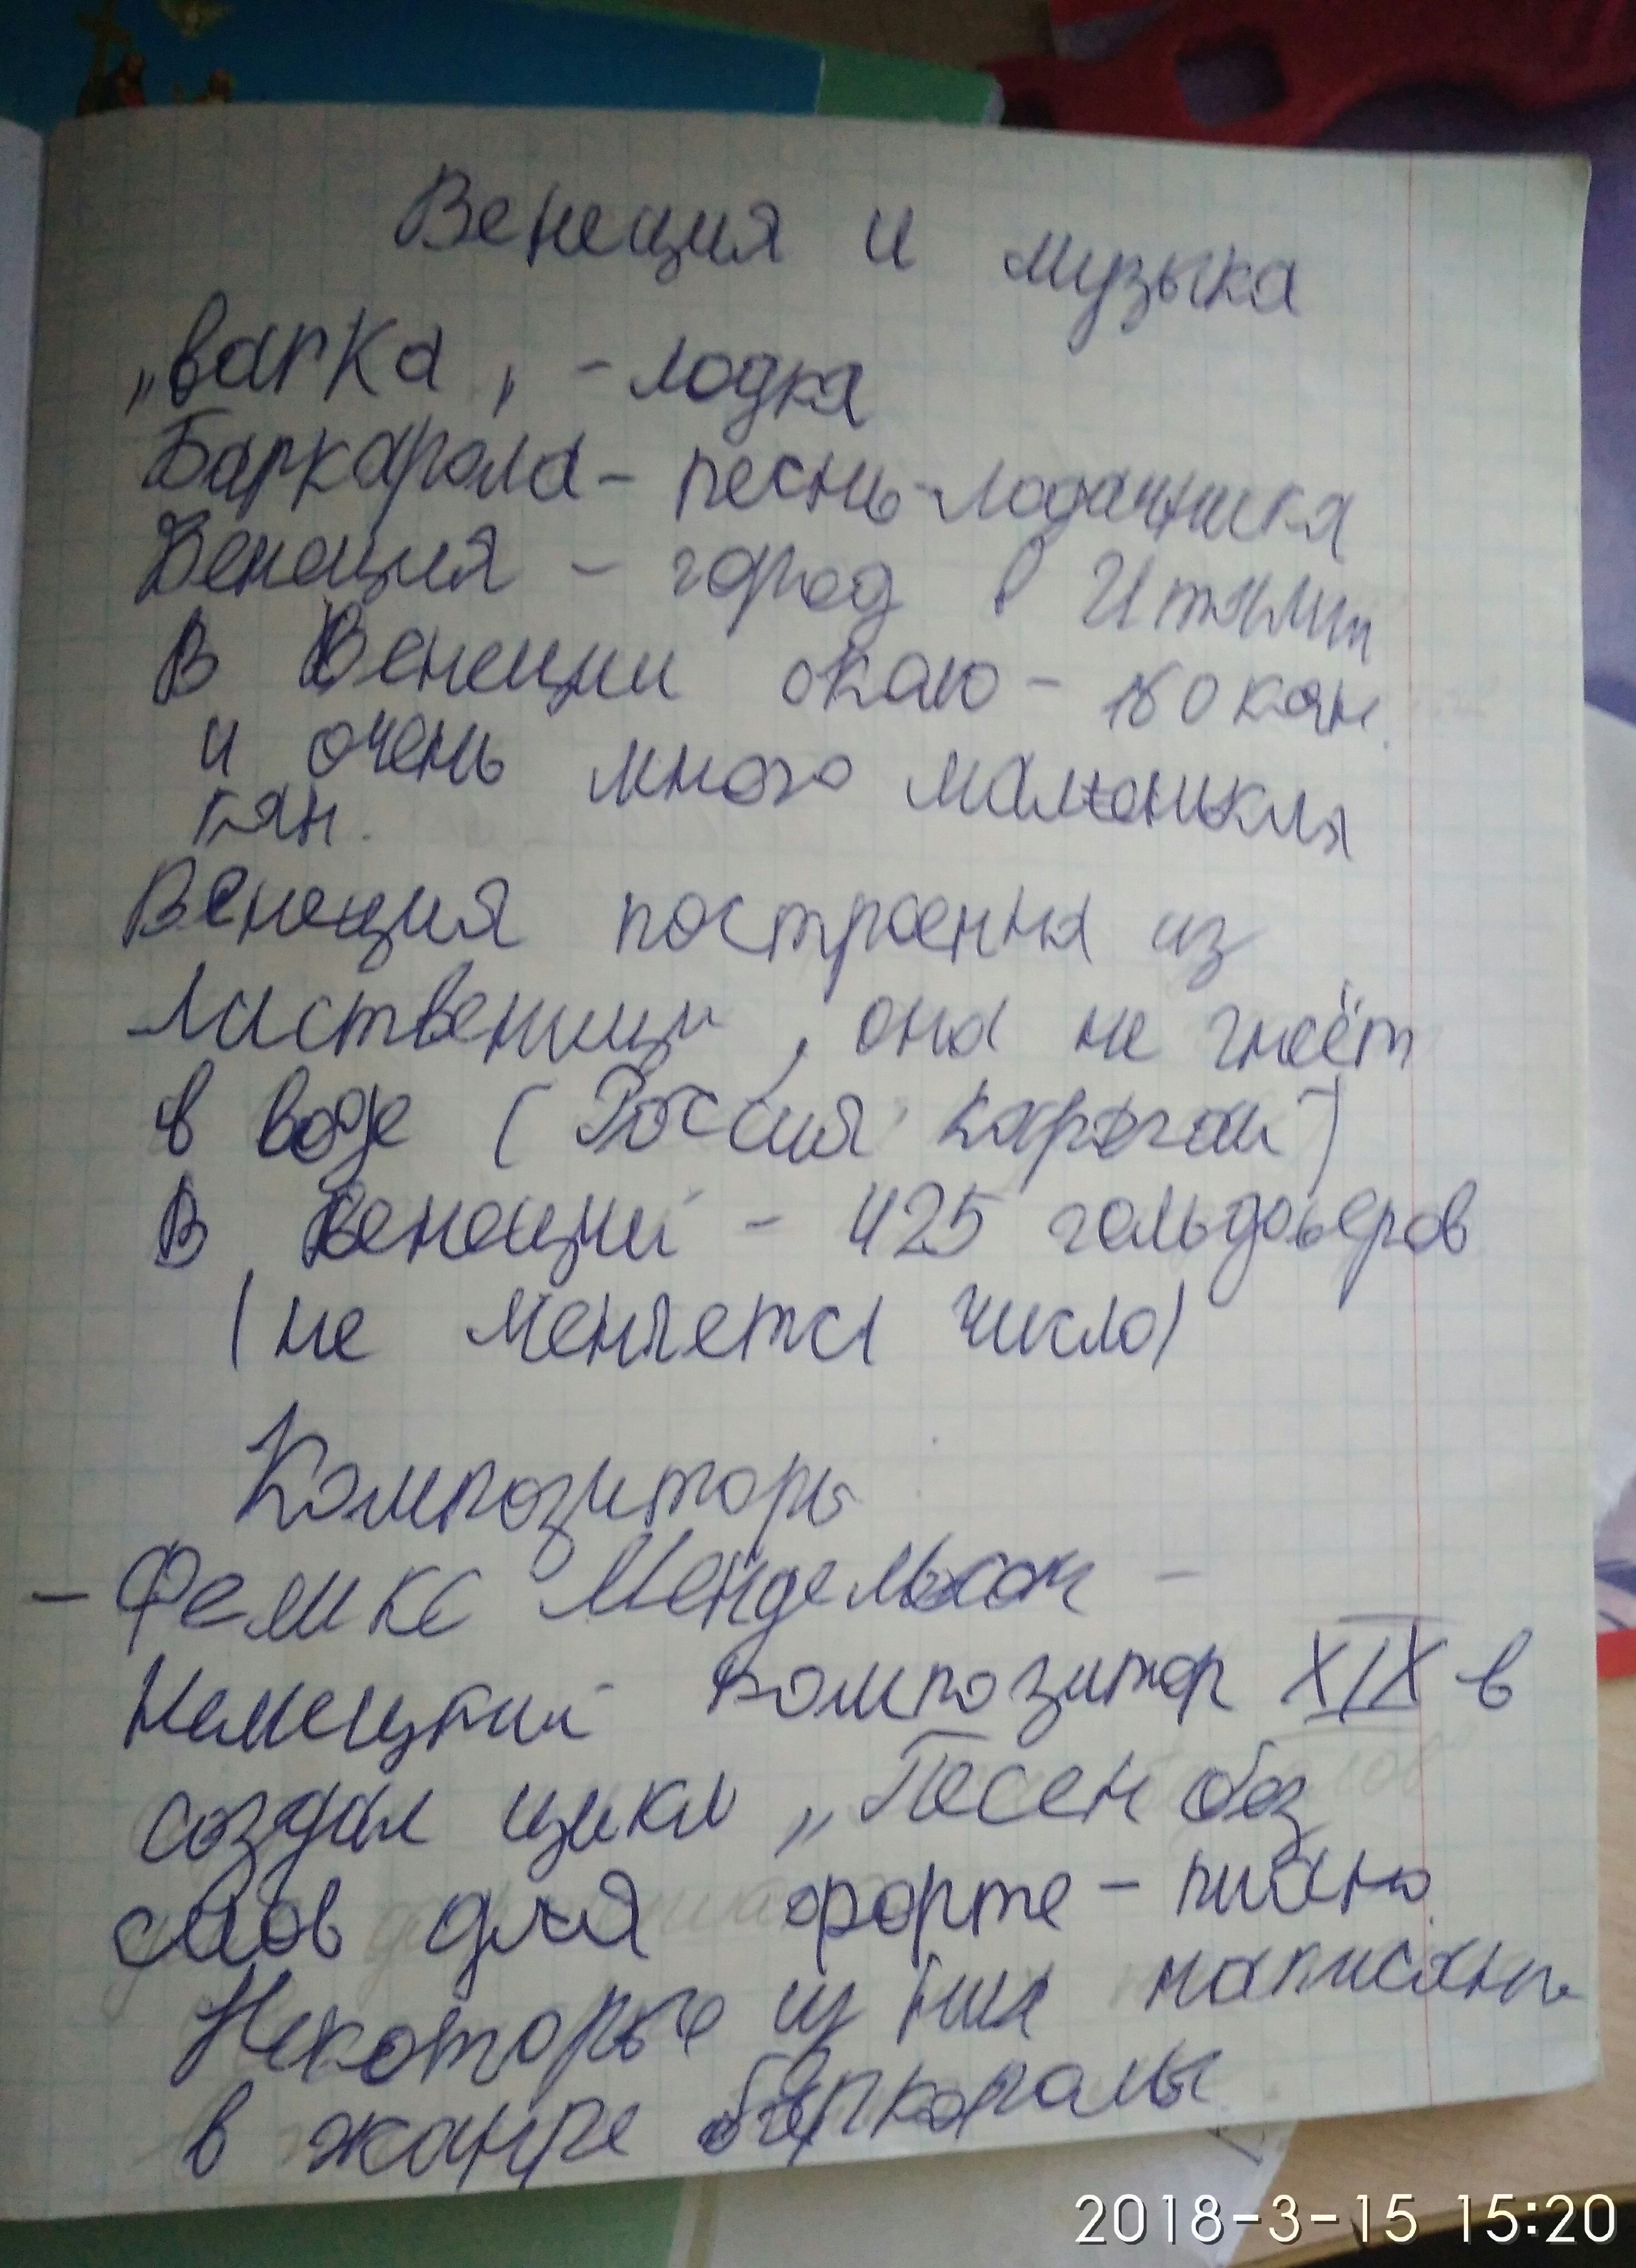 Венеция и музыка
„варка„ - лодка
Баркарола - песнь-лодачника
Венеция - город в Италии
В Венеции окало - 160 кан.
и очень много маленьких
кан.
Венеция построенна из
Лиственици, она не гнеёт
в воде (Россия
В Венеции - 425 гольдольеров
(не меняется число)
Композиторы
- Феликс Мендельсон -
Немецкий композитор XIX в
создал цикл „Песен без
слов для форте-пиано.
Некоторые из них написаны
в жанре баркоролы
2018-3-15 15:20